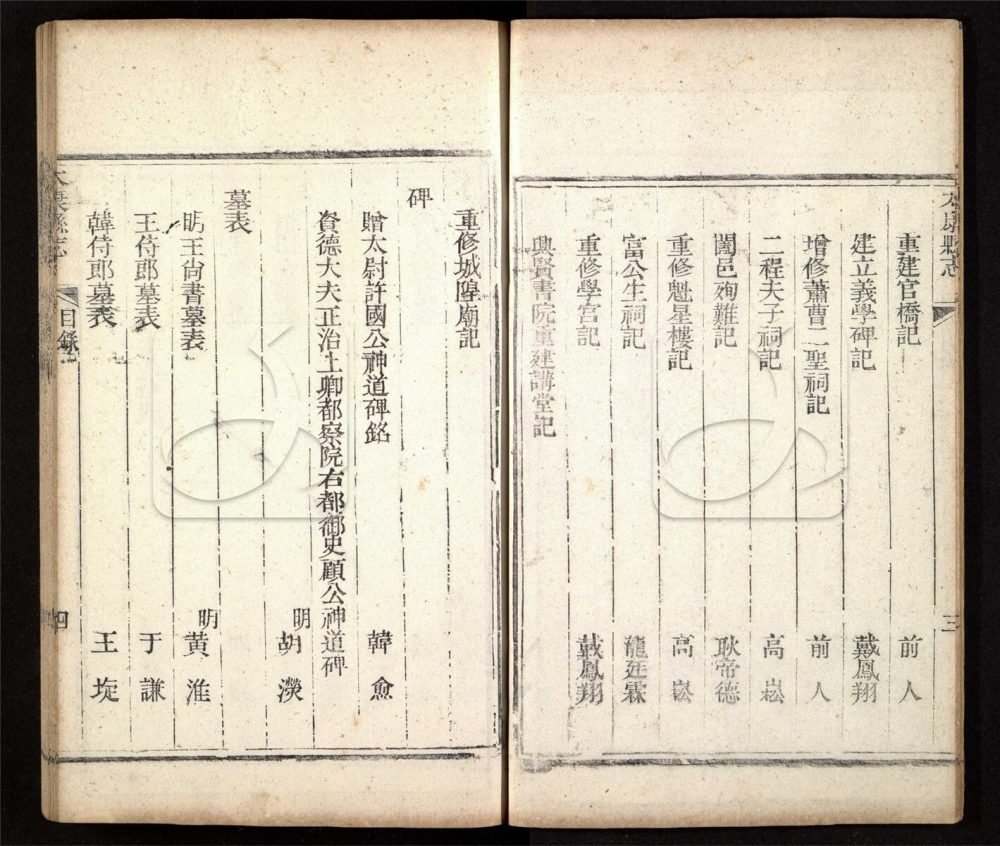 太康縣志
三
重建官橋記 前人
建立義學碑記 戴鳳翔
增修蕭曹二聖祠記 前人
二程夫子祠記 高崧
闔邑殉難記 耿帝德
重修魁星樓記 高崧
富公生祠記 龍廷霖
重修學宮記 戴鳳翔
興賢書院重建講堂記
重修城隍廟記
碑
贈太尉許國公神道碑銘 韓愈
資德大夫正治上卿都察院右都御史顧公神道碑
明胡濙
墓表
明王尚書墓表 明黃淮
王侍郎墓表 于謙
韓侍郎墓表 王埞
太康縣志 目錄 四